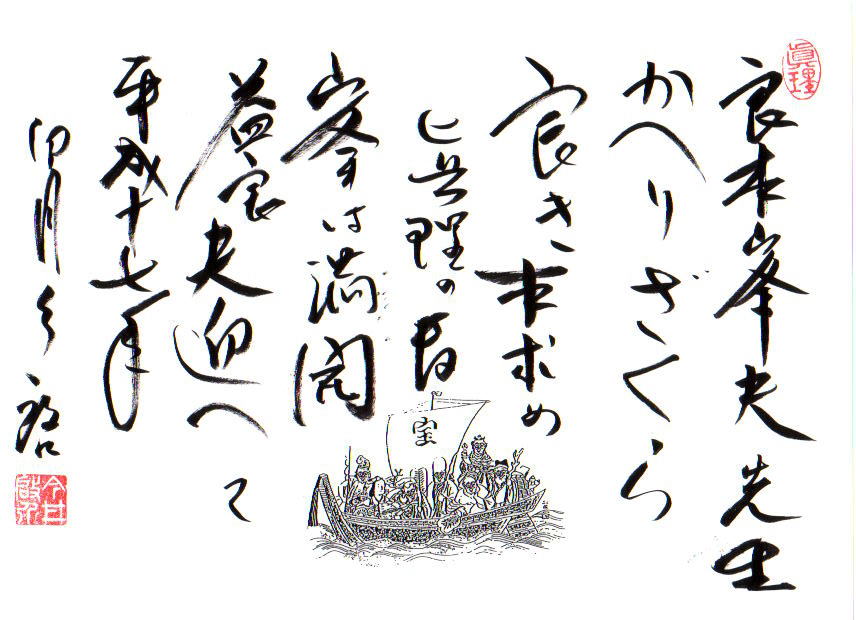 眞理
良本峯夫先生
かへりざくら
良き本求め
真理の
峯は満開
益良夫迎へて
平成十七年
卯月
宝